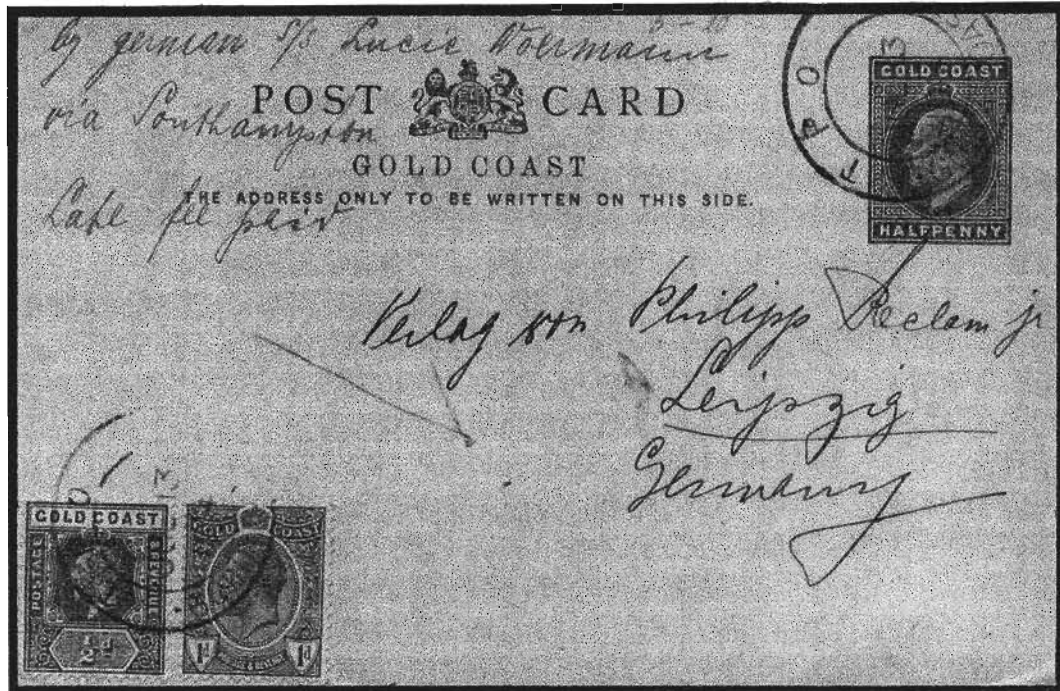 by german S/S Lucie Woermann
via Southampton
Late fee paid
POST CARD
GOLD COAST
THE ADDRESS ONLY TO BE WRITTEN ON THIS SIDE.
T P O
13
GOLD COAST
HALFPENNY
Verlag von Philipp Reclam jr
Leipzig
Germany
13
GOLD COAST
POSTAGE
REVENUE
½d
GOLD COAST
POSTAGE & REVENUE
1d 1d